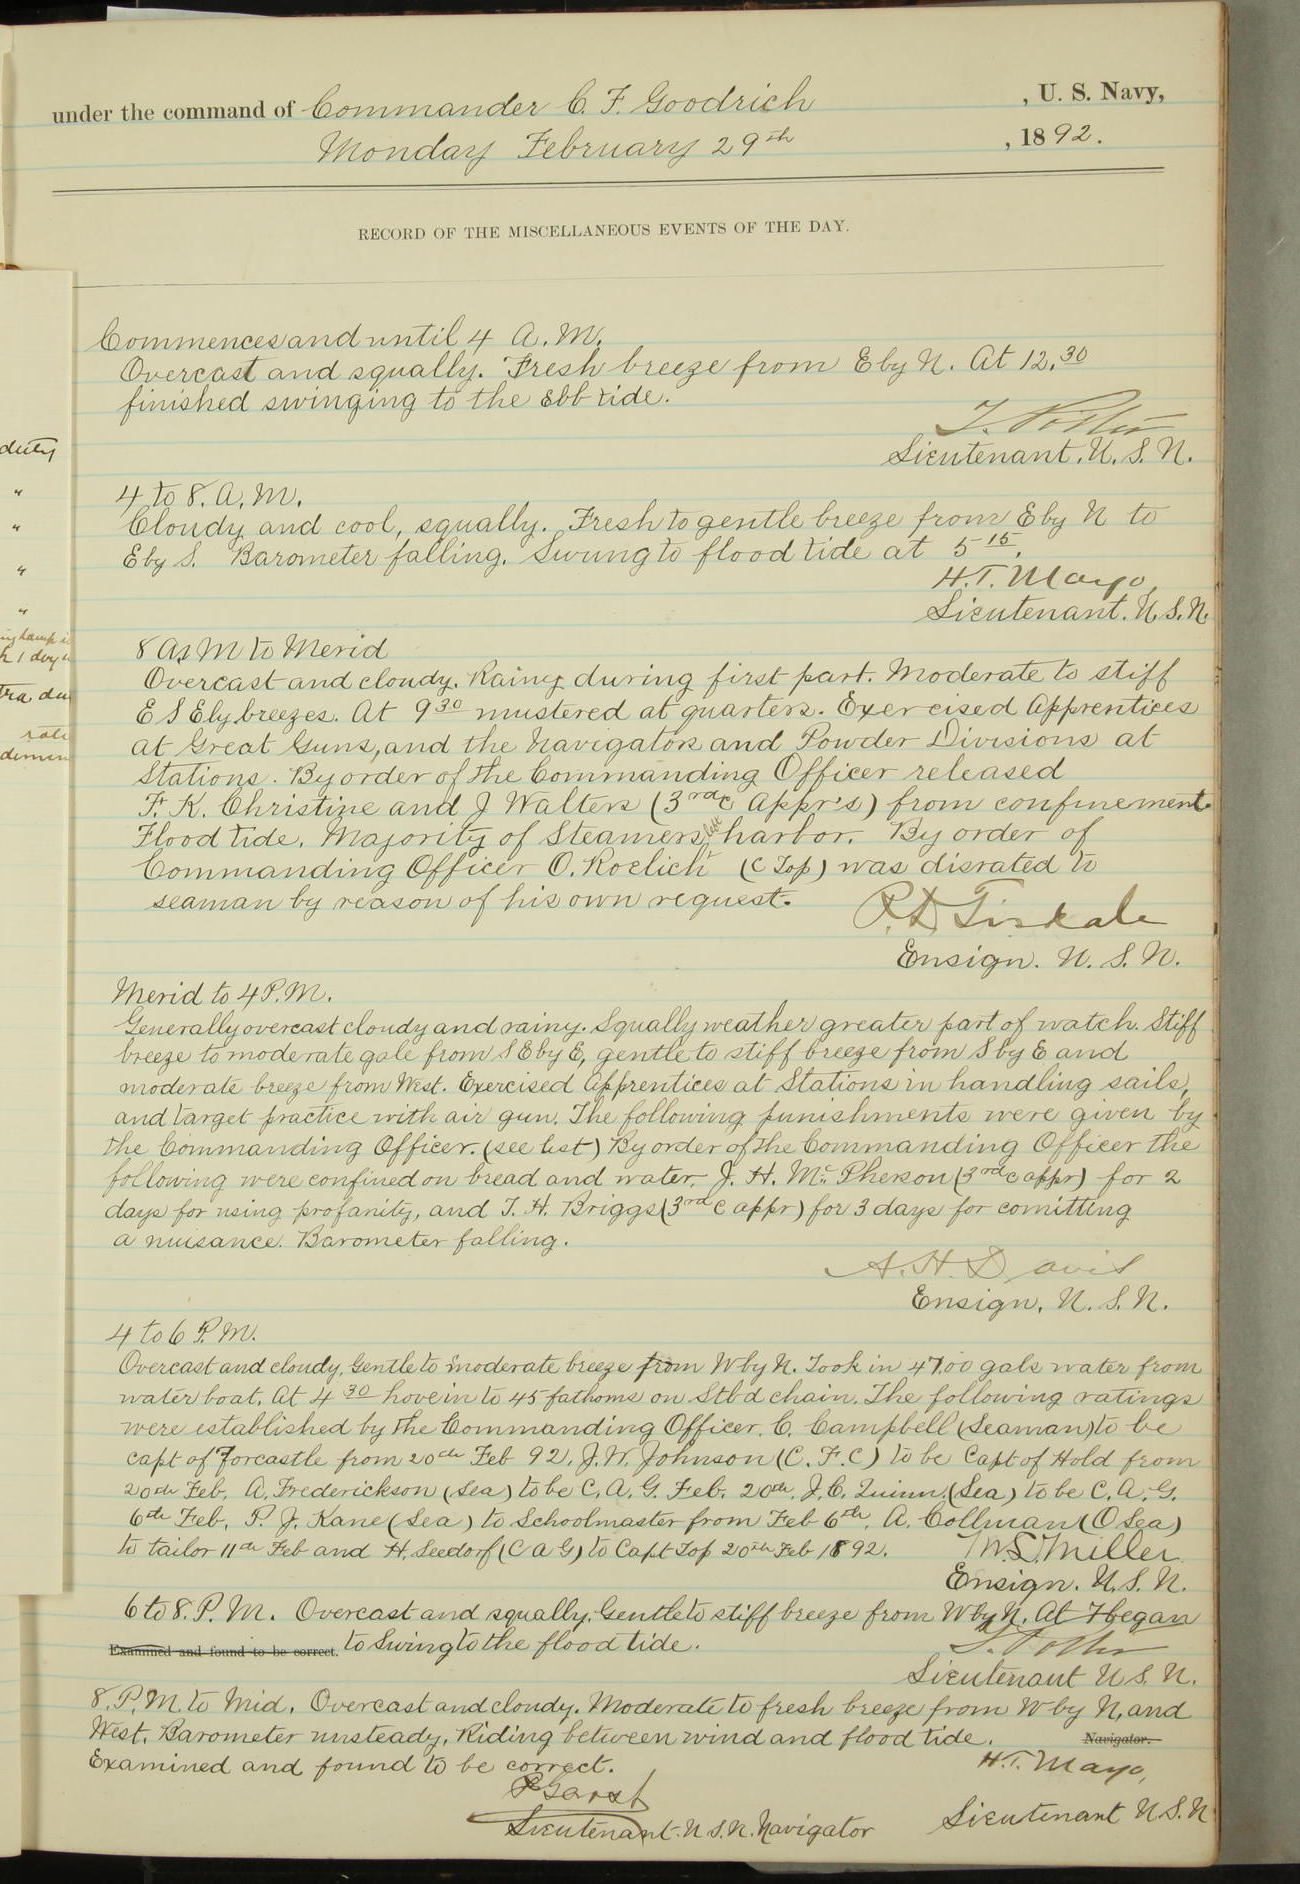 under the command of Commander C. F. Goodrich , U. S. Navy,
Monday February 29th , 1892.
RECORD OF THE MISCELLANEOUS EVENTS OF THE DAY.
Commences and until 4 A.M.
Overcast and squally. Fresh breeze from E by N. At 12.30
finished swinging to the ebb tide.
Lieutenant. U. S. N.
duty
4 to 8. A. M.
Cloudy and cool, squally. Fresh to gentle breeze from E by N to
E by S. Barometer falling. Swung to flood tide at 5 15.
H. T. Mayo,
Lieutenant. U. S. N.
8 A M to Merid
Overcast and cloudy. Rainy during first part. Moderate to stiff
E S Ely breezes. At 9 30 mustered at quarters. Exercised Apprentices
at Great Guns, and the Navigators and Powder Divisions at
Stations. By order of the Commanding Officer released
F. K. Christine and J Walters (3rd c appr's) from confinement.
Flood tide. Majority of Steamers left harbor. By order of
Commanding Officer O. Roelich (C Top) was disrated to
seaman by reason of his own request.
Ensign. U. S. N.
Merid to 4 P.M.
Generally overcast cloudy and rainy. Squally weather greater part of watch. Stiff
breeze to moderate gale from S E by E, gentle to stiff breeze from S by E and
moderate breeze from West. Exercised Apprentices at Stations in handling sails,
and target practice with air gun. The following punishments were given by
the Commanding Officer. (see list) By order of the Commanding Officer the
following were confined on bread and water. J. H. McPherson (3rd c appr) for 2
days for using profanity, and T. H. Briggs (3rd c appr) for 3 days for comitting
a nuisance. Barometer falling.
A. H. Davis
Ensign. U. S. N.
4 to 6 P.M.
Overcast and cloudy. Gentle to moderate breeze from W by N. Took in 4700 gals water from
water boat. At 4 30 hove in to 45 fathoms on Stbd chain. The following ratings
were established by the Commanding Officer. C. Campbell (Seaman) to be
capt of forcastle from 20th Feb 92. J. W. Johnson (C. F. C) to be Capt of Hold from
20th Feb. A. Frederickson (Sea) to be C. A. G. Feb. 20th. J. C. Quinn (Sea) to be C. A. G.
6th Feb. P. J. Kane (Sea) to Schoolmaster from Feb 6th. A. Collman (O Sea)
to tailor 11th Feb and H. Seedorf (C A G) to Capt Top 20th Feb 1892.
M. L. Miller
Ensign. U. S. N.
6 to 8. P. M. Overcast and squally. Gentle to stiff breeze from W by N. At 7 began
Examined and found to be correct. to swing to the flood tide.
Lieutenant U S. N.
8. P. M. to Mid. Overcast and cloudy. Moderate to fresh breeze from W by N, and
West. Barometer unsteady. Riding between wind and flood tide. Navigator.
Examined and found to be correct. H. T. Mayo,
P Garst
Lieutenant. U S. N. Navigator Lieutenant U S. N